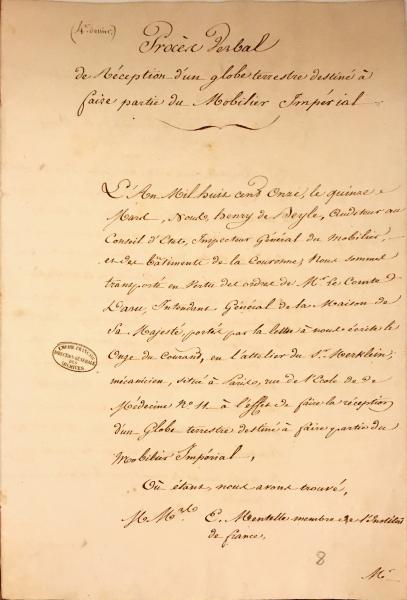 (4e dossier)
Procès Verbal
de Réception d'un globe terrestre destiné à
faire partie du Mobilier Impérial
L'An Mil huit cent Onze, le quinze
Mars, Nous, henry de Beyle, Auditeur au
Conseil d'Etat, Inspecteur Général du Mobilier,
et des bâtiments de la Couronne; Nous sommes
transporté en vertu des ordres de Mr. le Comte
Daru, Intendant Général de la Maison de
Sa Majesté, portés par la lettre à nous écrite le
Onze du Courant, en l'attelier du Sr. Merklein,
mécanicien, situé à Paris, rue de l'Ecole de
Médecine No. 11. à l'effet de faire la réception
d'un Globe terrestre destiné à faire partie du
Mobilier Impérial,
EMPIRE FRANÇAIS
DIRECTION GÉNÉRALE
DES
ARCHIVES
Où étant, nous avons trouvé,
E. Mentelle membre de l'Institut
de france,
8
Mr.